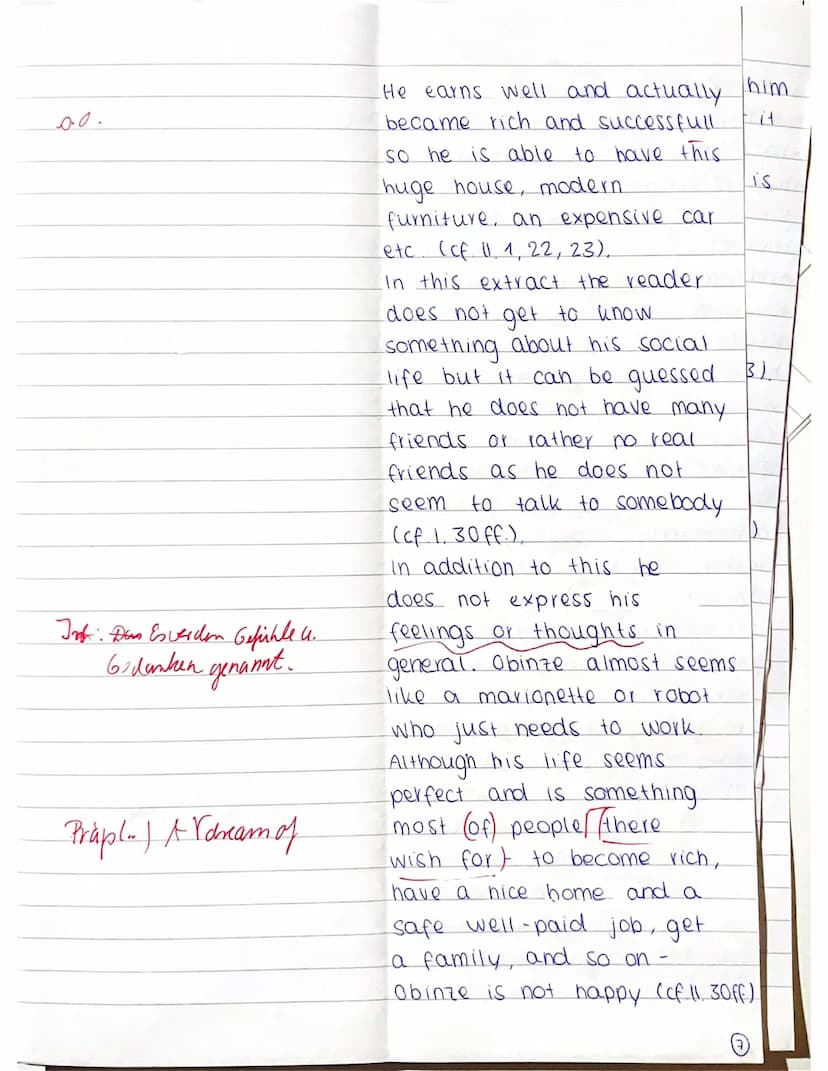 He earns well and actually
became rich and successfull
so he is able to have this
huge house, modern
furniture, an expensive car
etc. (cf ll. 1, 22, 23).
In this extract the reader
does not get to know
something about his social
life but it can be guessed
that he does not have many
friends or rather no real
friends as he does not
seem to talk to somebody
(cf. l. 30ff.).
In addition to this he
does not express his
feelings or thoughts in
general. Obinze almost seems
like a marionette or robot
who just needs to work.
Although his life seems
perfect and is something
most (of) people (there
wish for) - to become rich,
have a nice home and a
safe well-paid job, get
a family, and so on -
Obinze is not happy (cf ll. 30ff)
7
him
it
is
3).
)
o.O.
Inf.: Das Es werden Gefühle u.
Gedanken genannt.
dream of